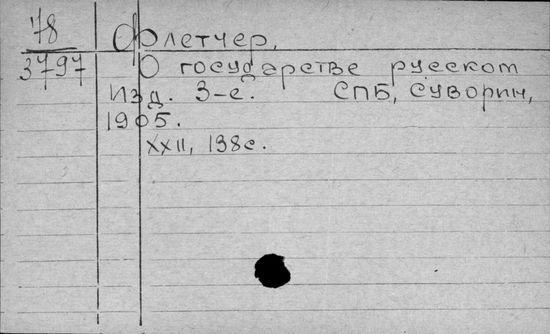 78
Флетчер,
3797
О государстве русском
Изд. 3-е. СПБ, Суворин,
1905.
XXII, 138с.